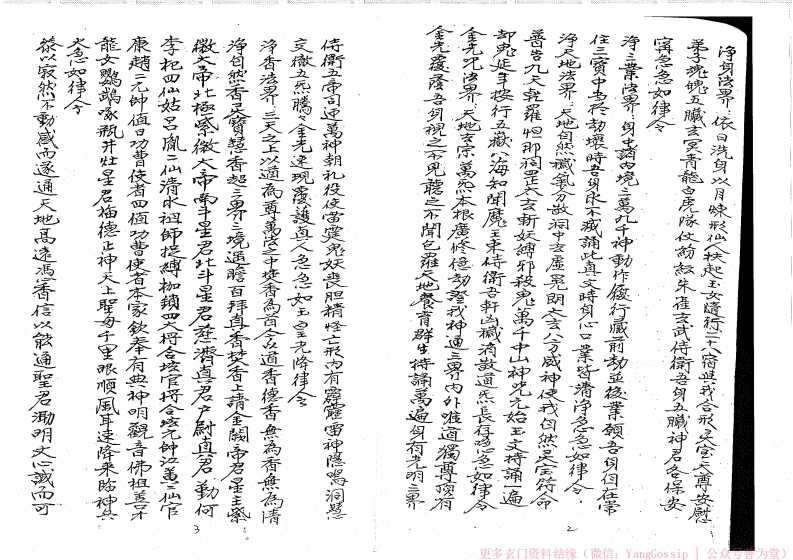 淨身法界：依日洗身以月煉形仙人扶起玉女隨行二十八宿與我合形灵宝天尊安慰
弟魂魄五臟玄冥青龍白虎隊仗紛紜朱雀玄武侍衛吾身五臟神君各保安
寧急急如律令
淨三業法界：身中諸內境三萬九千神動作履行藏前劫並後業願吾身自在常
住三寶中當於劫壞時吾身永不滅誦此真文時身心口業皆清淨急急如律令
淨天地法界：天地自然穢氣分散洞中玄虛晃朗太玄八方威神使我自然灵宝符命
普告九天乾羅怛那洞罡太玄斬妖縛邪殺鬼萬千中山神咒元始玉文持誦一遍
却鬼延年按行五嶽八海知聞魔王束侍衛吾軒凶穢消散道炁長存急急如律令
金光咒法界：天地玄宗萬炁本根廣修億劫證我神通三界內外唯道獨尊頂有
金光覆蔭吾身視之不見聽之不聞包羅天地養育群生持誦萬遍身有光明三界
2
侍衛五帝司迎萬神朝礼役使雷霆鬼妖喪胆精怪亡形內有霹靂雷神隱鳴洞慧
交徹五炁騰騰金光速現覆護真人急急如玉皇光降律令
淨香法界：三天之上以道為尊萬法之中焚香為首今以道香德香無為香無為清
淨自然香灵寶慧香超三界三境遙瞻百拜真香焚香上請金闕帝君星主紫
微大帝北極紫微大帝南斗星君北斗星君慈濟真君尸尉真君勤何
李杞四仙姑呂胤二仙清水祖師捉縛枷鎖四大將合垓官將合垓元帥江萬二仙官
康趙二元帥值日功曹使者四值功曹使者本家欽奉有典神明觀音佛祖善才
龍女鸚鵡啄瓶井灶星君梅德正神天上聖母千里眼順風耳速降來臨神兵
火急如律令
祿以寂然不動感而遂通天地高遠馮香信以能通聖君渺明文心誠而可
3
更多玄门资料结缘（微信：YangGossip | 公众号善为堂）